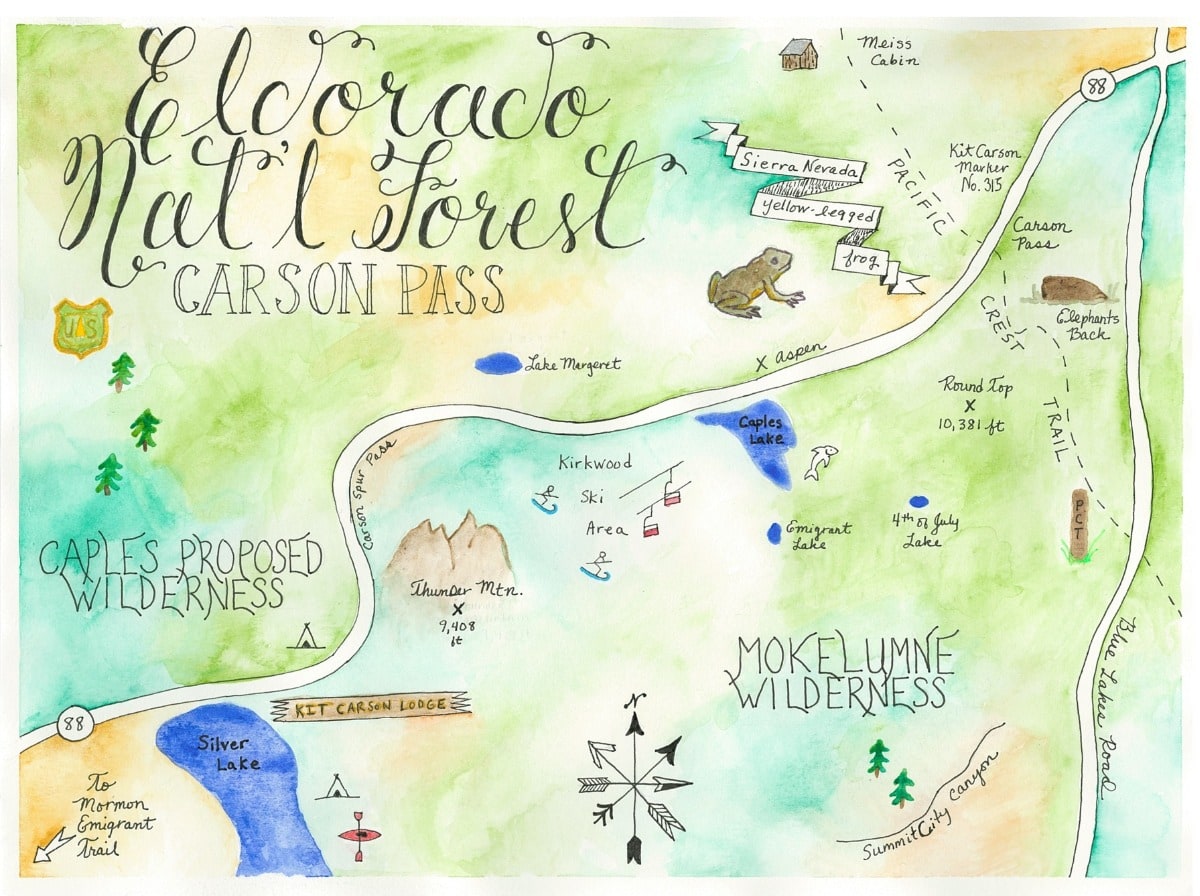 Eldorado
Nat'l Forest
CARSON PASS
US
Meiss
Cabin
88
Sierra Nevada
yellow-legged
frog
PACIFIC
CREST
TRAIL
Kit Carson
Marker
No. 315
Carson
Pass
Elephants
Back
Lake Margeret
X Aspen
Round Top
X
10,381 ft
Caples
Lake
Carson Spur Pass
Kirkwood
Ski
Area
Emigrant
Lake
4th of July
Lake
PCT
CAPLES PROPOSED
WILDERNESS
Thunder Mtn.
X
9,408
ft
MOKELUMNE
WILDERNESS
Blue Lakes Road
KIT CARSON LODGE
88
Silver
Lake
N
To
Mormon
Emigrant
Trail
Summit City Canyon